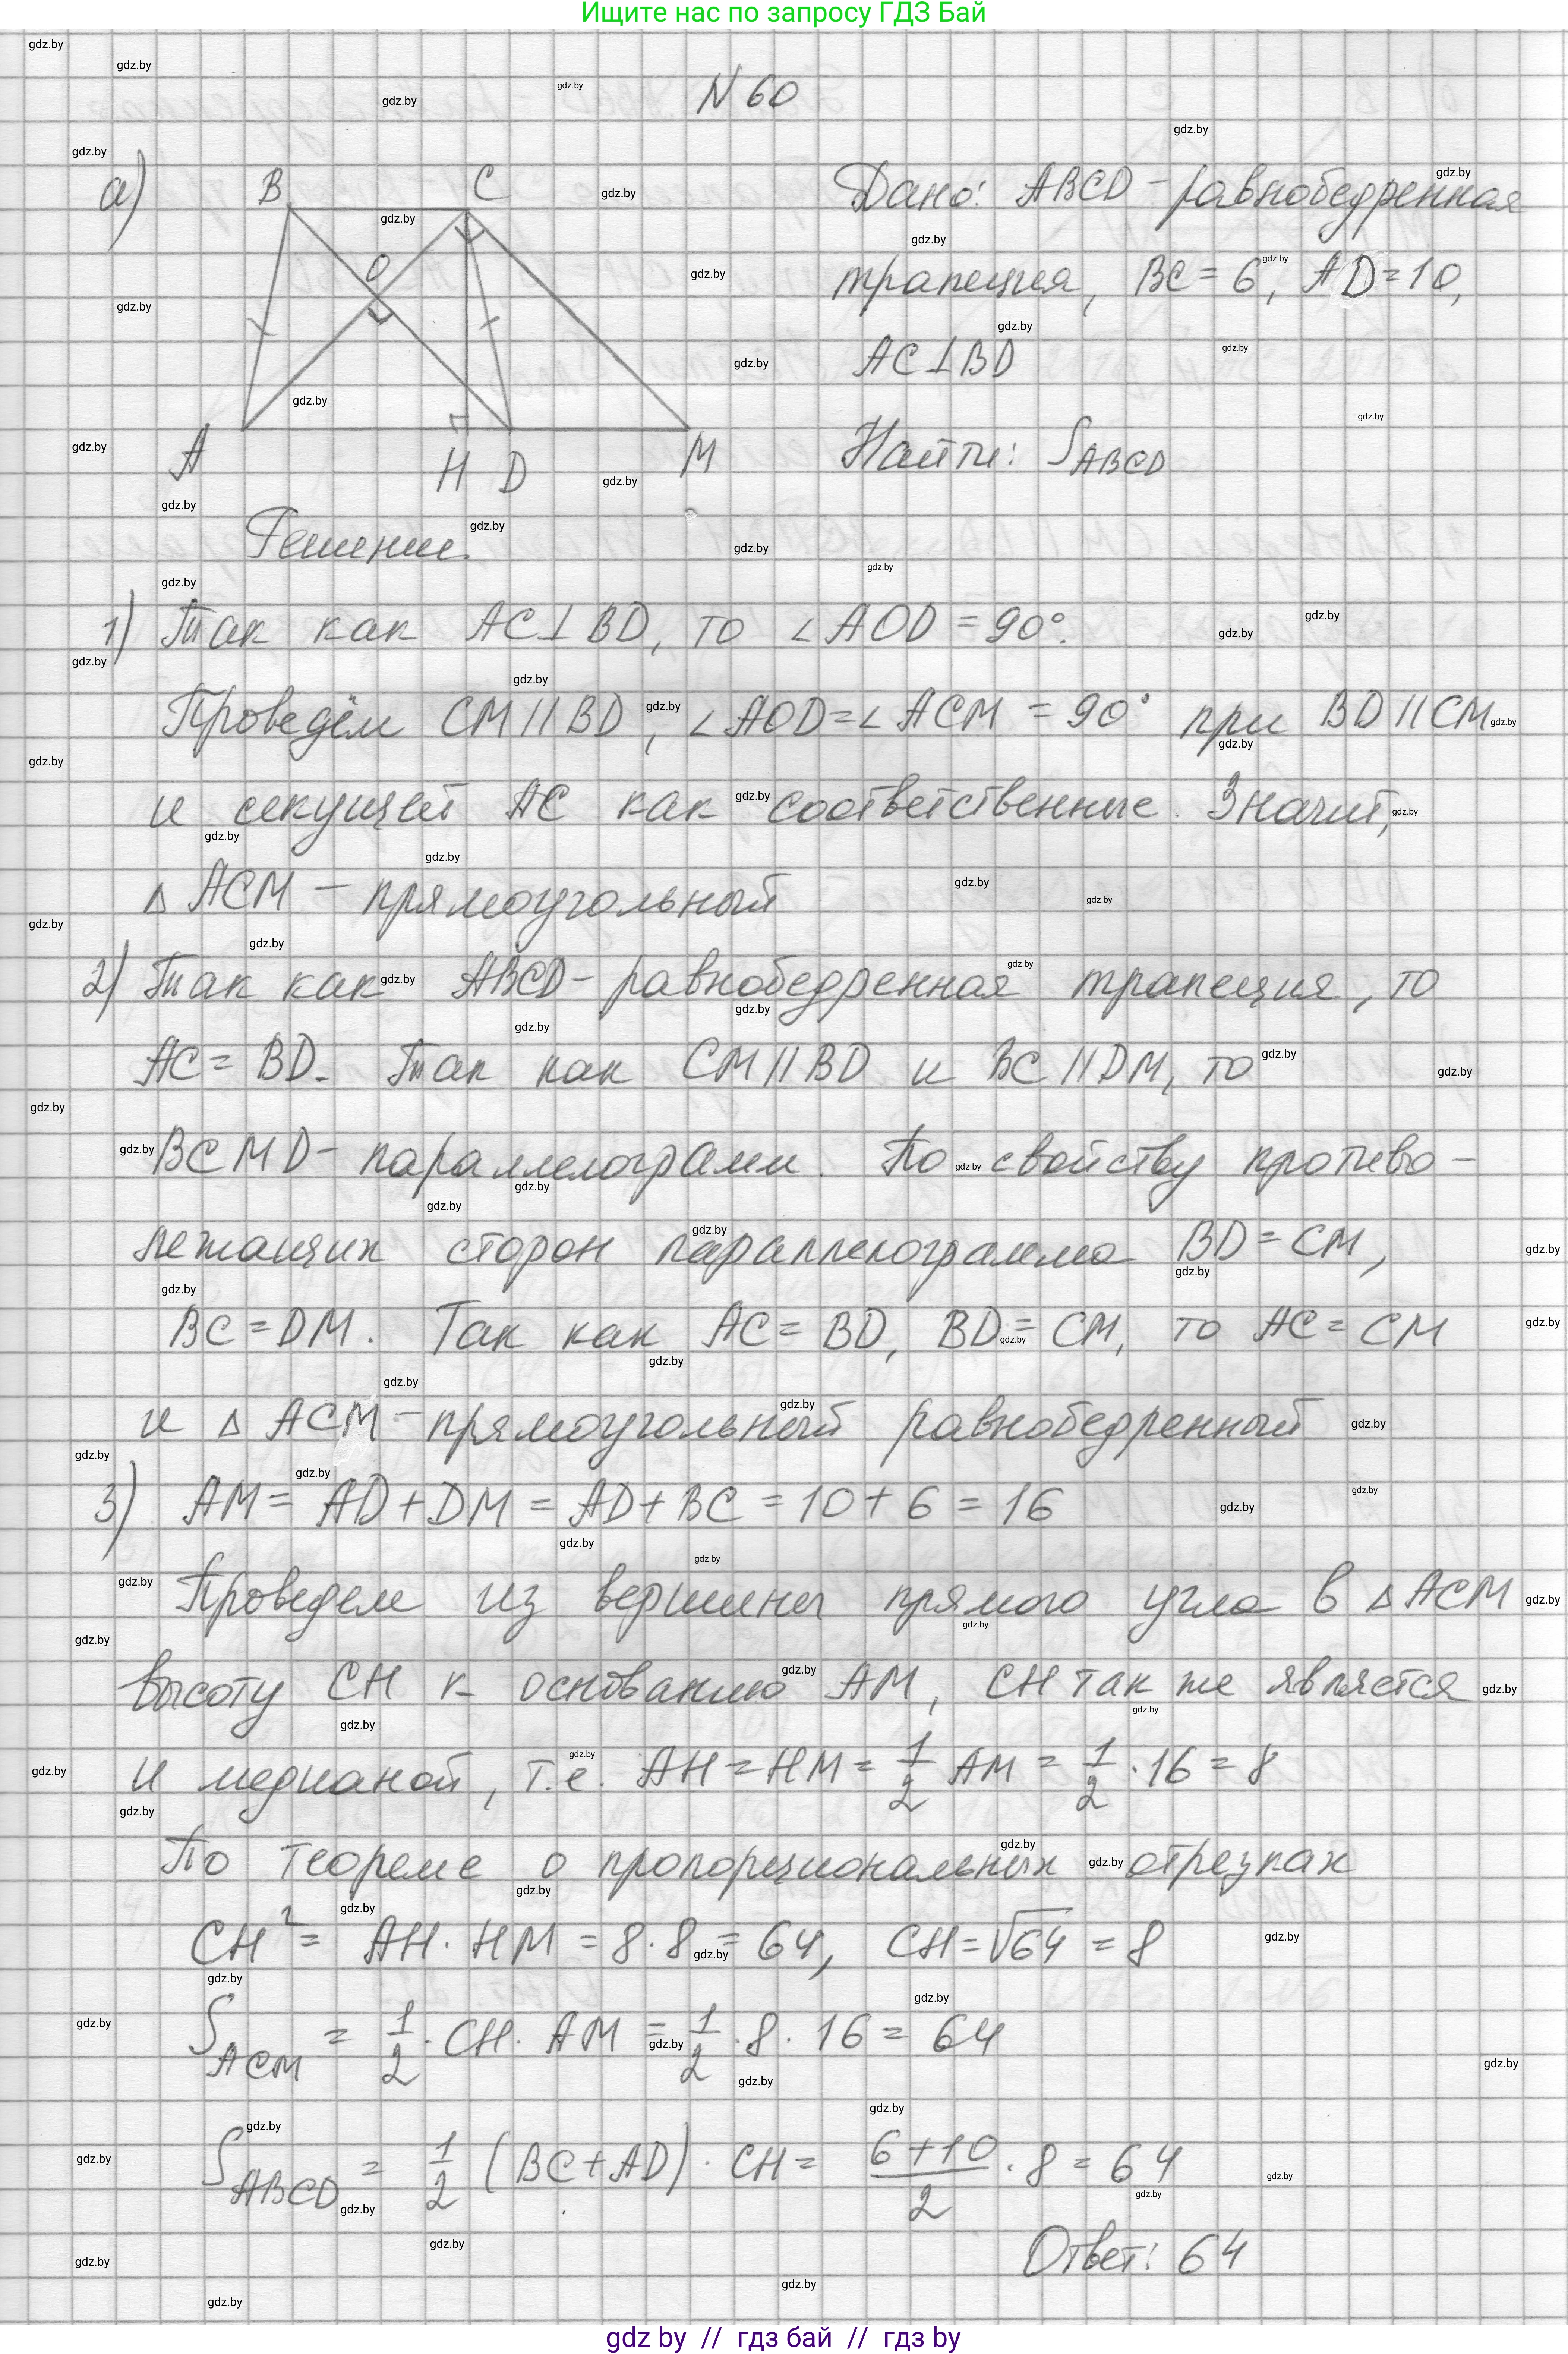 Ищите нас по запросу ГДЗ Бай
N 60
а)
B C
O
A H D M
Дано: ABCD - равнобедренная
трапеция, BC = 6, AD = 10,
AC ⊥ BD
Найти: S ABCD
Решение.
1) Так как AC ⊥ BD, то ∠AOD = 90°.
Проведём CM || BD, ∠AOD = ∠ACM = 90° при BD || CM
и секущей AC как соответственные. Значит,
△ ACM - прямоугольный
2) Так как ABCD - равнобедренная трапеция, то
AC = BD. Так как CM || BD и BC || DM, то
BCMD - параллелограмм. По свойству противо-
лежащих сторон параллелограмма BD = CM,
BC = DM. Так как AC = BD, BD = CM, то AC = CM
и △ ACM - прямоугольный равнобедренный
3) AM = AD + DM = AD + BC = 10 + 6 = 16
Проведем из вершины прямого угла в △ ACM
высоту CH к основанию AM, CH так же является
и медианой, т.е. AH = HM = 1/2 AM = 1/2 · 16 = 8
По теореме о пропорциональных отрезках
CH² = AH · HM = 8 · 8 = 64, CH = √64 = 8
S ACM = 1/2 · CH · AM = 1/2 · 8 · 16 = 64
S ABCD = 1/2 (BC + AD) · CH = (6 + 10)/2 · 8 = 64
Ответ: 64
gdz by // гдз бай // гдз by